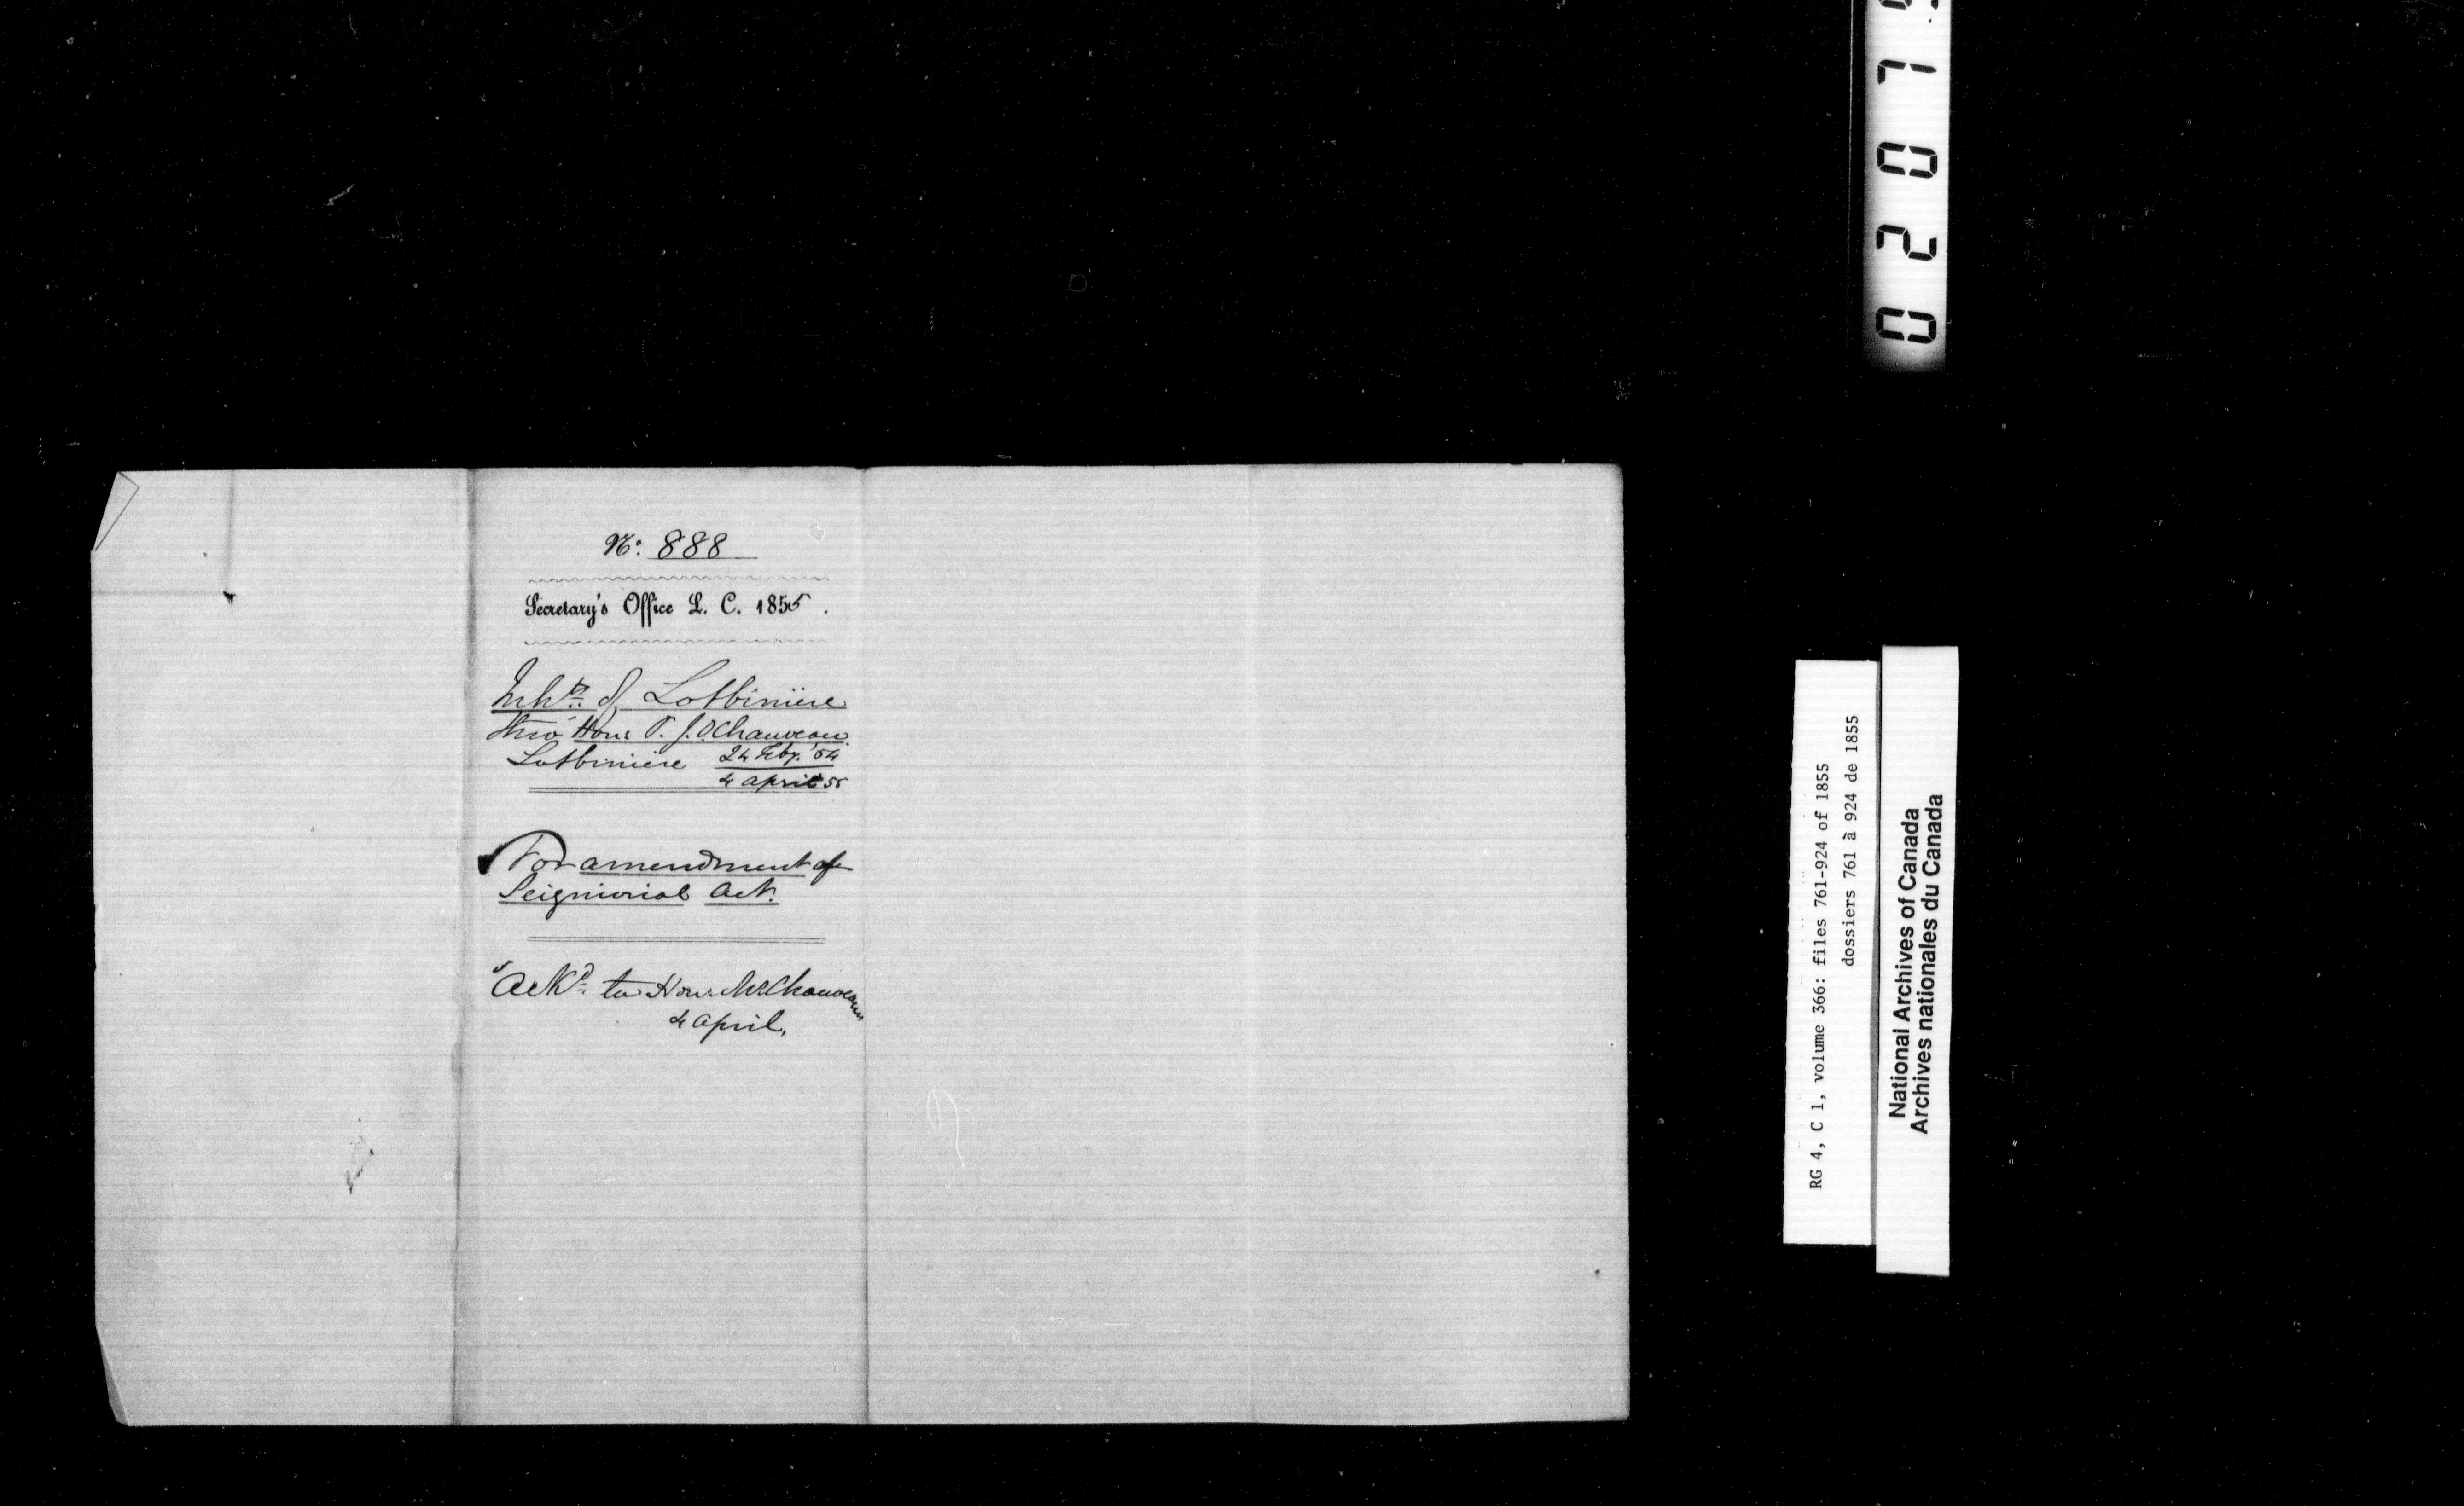 No. 888
Secretary's Office L. C. 1855.
Inhts. of Lotbiniere
thro' Hon: P. J. O Chauveau.
Lotbiniere 24 Feby. '54
4 April 55
For amendment of
Seigniorial Act.
Ackd. to Hon: Mr Chauveau
4 April,
0 2 0 7
RG 4, C 1, volume 366: files 761-924 of 1855
dossiers 761 à 924 de 1855
National Archives of Canada
Archives nationales du Canada